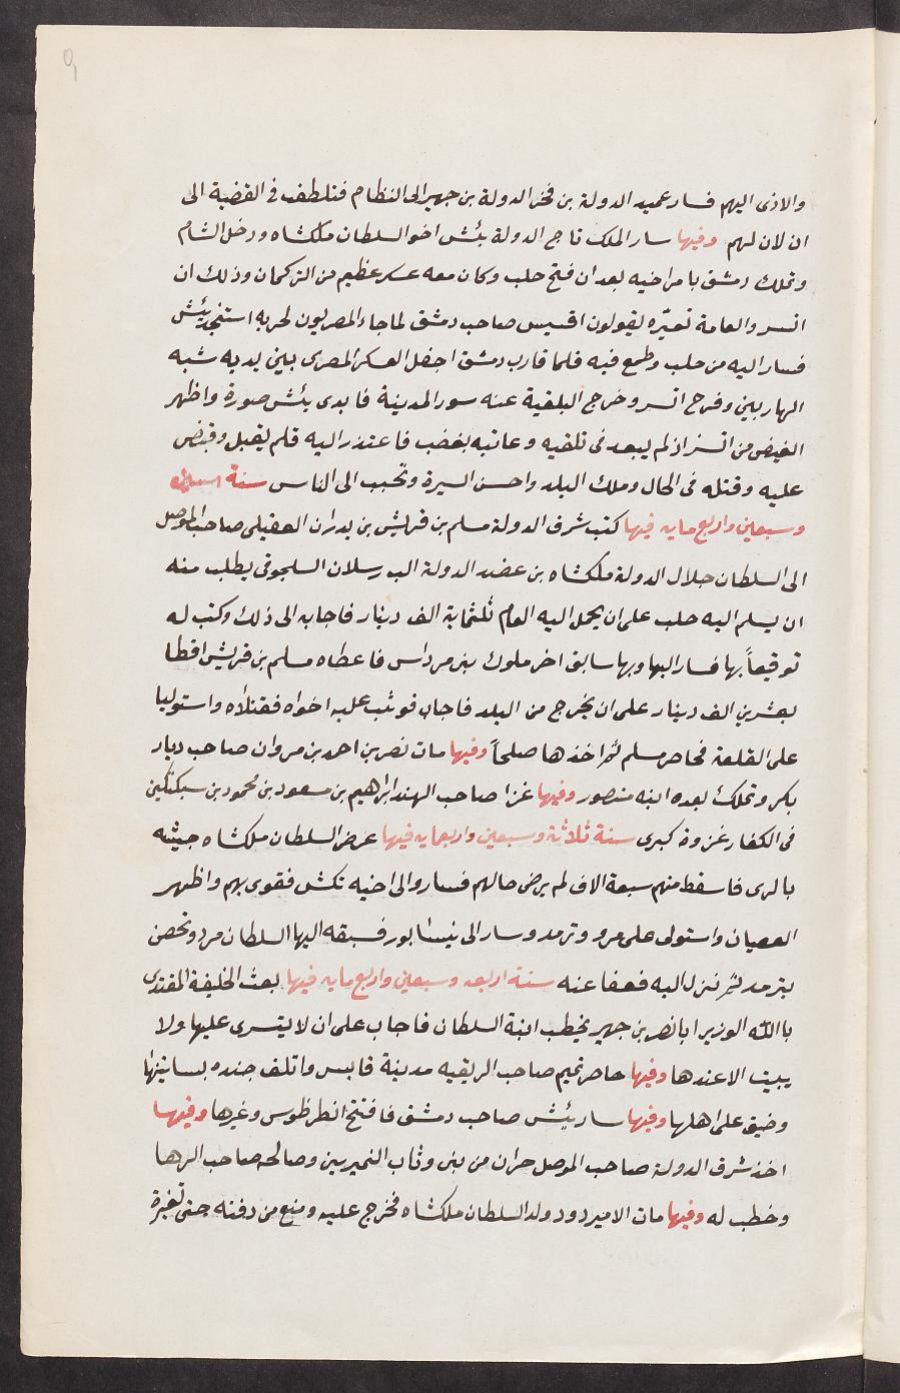 والاذى اليهم فسار عميد الدولة بن فخر الدولة بن جهير الى النظام فتلطف فى القضية الى
ان لان لهم وفيها سار الملك تاج الدولة تتش اخو السلطان ملكشاه ودخل الشام
وتملك دمشق بامر اخيه بعد ان فتح حلب وكان معه عسكر عظيم من التركمان وذلك ان
اتسر والعامة تعيّره يقولون اقسيس صاحب دمشق لما جاء المصريون لحربه استنجد بتتش
فسار اليه من حلب وطمع فيه فلما قارب دمشق اجفل العسكر المصرى بين يديه شبه
الهاربين وفرح اتسر وخرج لتلقيه عنه سور المدينة فابدى تتش صورة واظهر
الغيض من اتسز اذ لم يبعد فى تلقيه وعاتبه بغضب فاعتذر اليه فلم يقبل وقبض
عليه وقتله فى الحال وملك البلد واحسن السيرة وتحبب الى الناس سنة
وسبعين واربع مايه فيها كتب شرف الدولة مسلم بن قريش بن بدران العقيلى صاحب الموصل
الى السلطان جلال الدولة ملكشاه بن عضد الدولة الب رسلان السلجوقى يطلب منه
ان يسلم اليه حلب على ان يحمل اليه العام ثلثماية الف دينار فاجابه الى ذلك وكتب له
توقيعاً بها فسار اليها وبها سابق اخر ملوك بنى مرداس فاعطاه مسلم بن قريش اقطا
بعشرين الف دينار على ان يخرج من البلد فاجاب فوثب عليه اخواه فقتلاه واستوليا
على القلعة فحاصر مسلم ثم اخذها صلحاً وفيها مات نصر بن احمد بن مروان صاحب ديار
بكر وتملك بعده ابنه منصور وفيها غزا صاحب الهند ابراهيم بن مسعود بن محمود بن سبكتكين
فى الكفار غزوة كبرى سنة ثلاثة وسبعين واربعمايه فيها عرض السلطان ملكشاه جيشه
بالرى فاسقط منهم سبعة الاف لم يرض حالهم فساروا الى اخيه تكش فقوى بهم واظهر
العصيان واستولى على مرو وترمد وسار الى نيسابور فسبقه اليها السلطان فرد وتحصن
بترمد ثم نزل اليه فعفا عنه سنة اربعه وسبعين واربع مايه فيها بعث الخليفة المقتدى
باالله الوزير ابا نصر بن جهير يخطب ابنة السلطان فاجاب على ان لا يتسرى عليها ولا
يبيت الا عندها وفيها حاصر تميم صاحب افريقيه مدينة قابس واتلف جنده بساتينها
وضيق على اهلها وفيها سار تتش صاحب دمشق فافتتح انطرطوس وغيرها وفيها
اخذ شرف الدولة صاحب الموصل حران من بنى وثاب النميريين وصالحه صاحب الرها
وخطب له وفيها مات الامير داود ولد السلطان ملكشاه فجزع عليه ومنع من دفنه حتى تغيرة